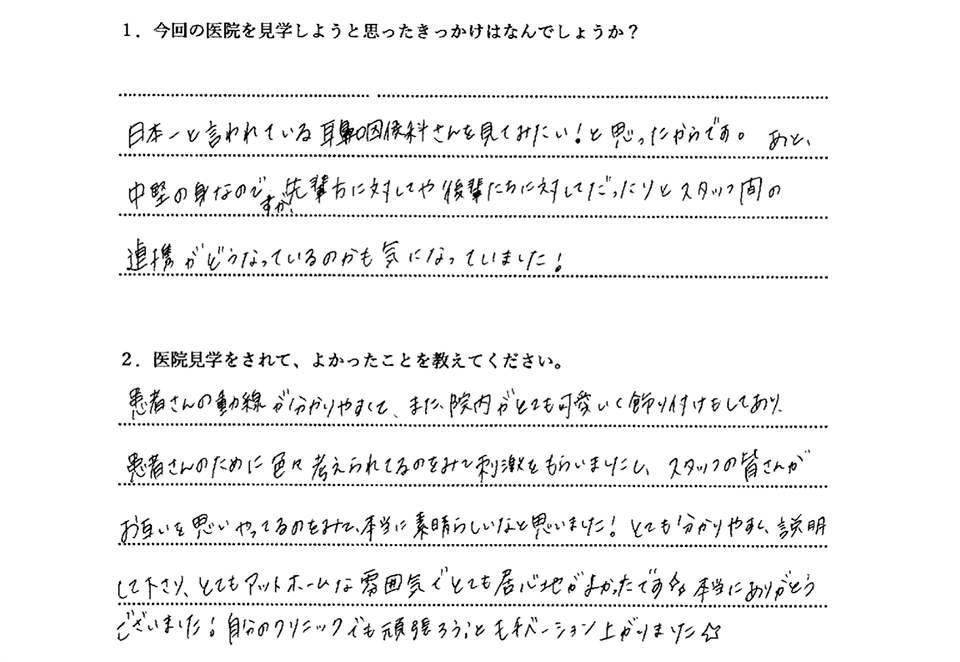 1．今回の医院を見学しようと思ったきっかけはなんでしょうか？
日本一と言われている耳鼻咽喉科さんを見てみたい！と思ったからです。あと、
中堅の身なのですが、先輩方に対してや後輩たちに対してだったりとスタッフ間の
連携がどうなっているのかも気になっていました！
2．医院見学をされて、よかったことを教えてください。
患者さんの動線が分かりやすくて、また、院内がとても可愛いく飾り付けもしており、
患者さんのために色々考えられてるのをみて刺激をもらいましたし、スタッフの皆さんが
お互いを思いやってるのをみて、本当に素晴らしいなと思いました！とても分かりやすく、説明
して下さり、とてもアットホームな雰囲気でとても居心地がよかったです☆本当にありがとう
ございました！自分のクリニックでも頑張ろう！とモチベーション上がりました☆